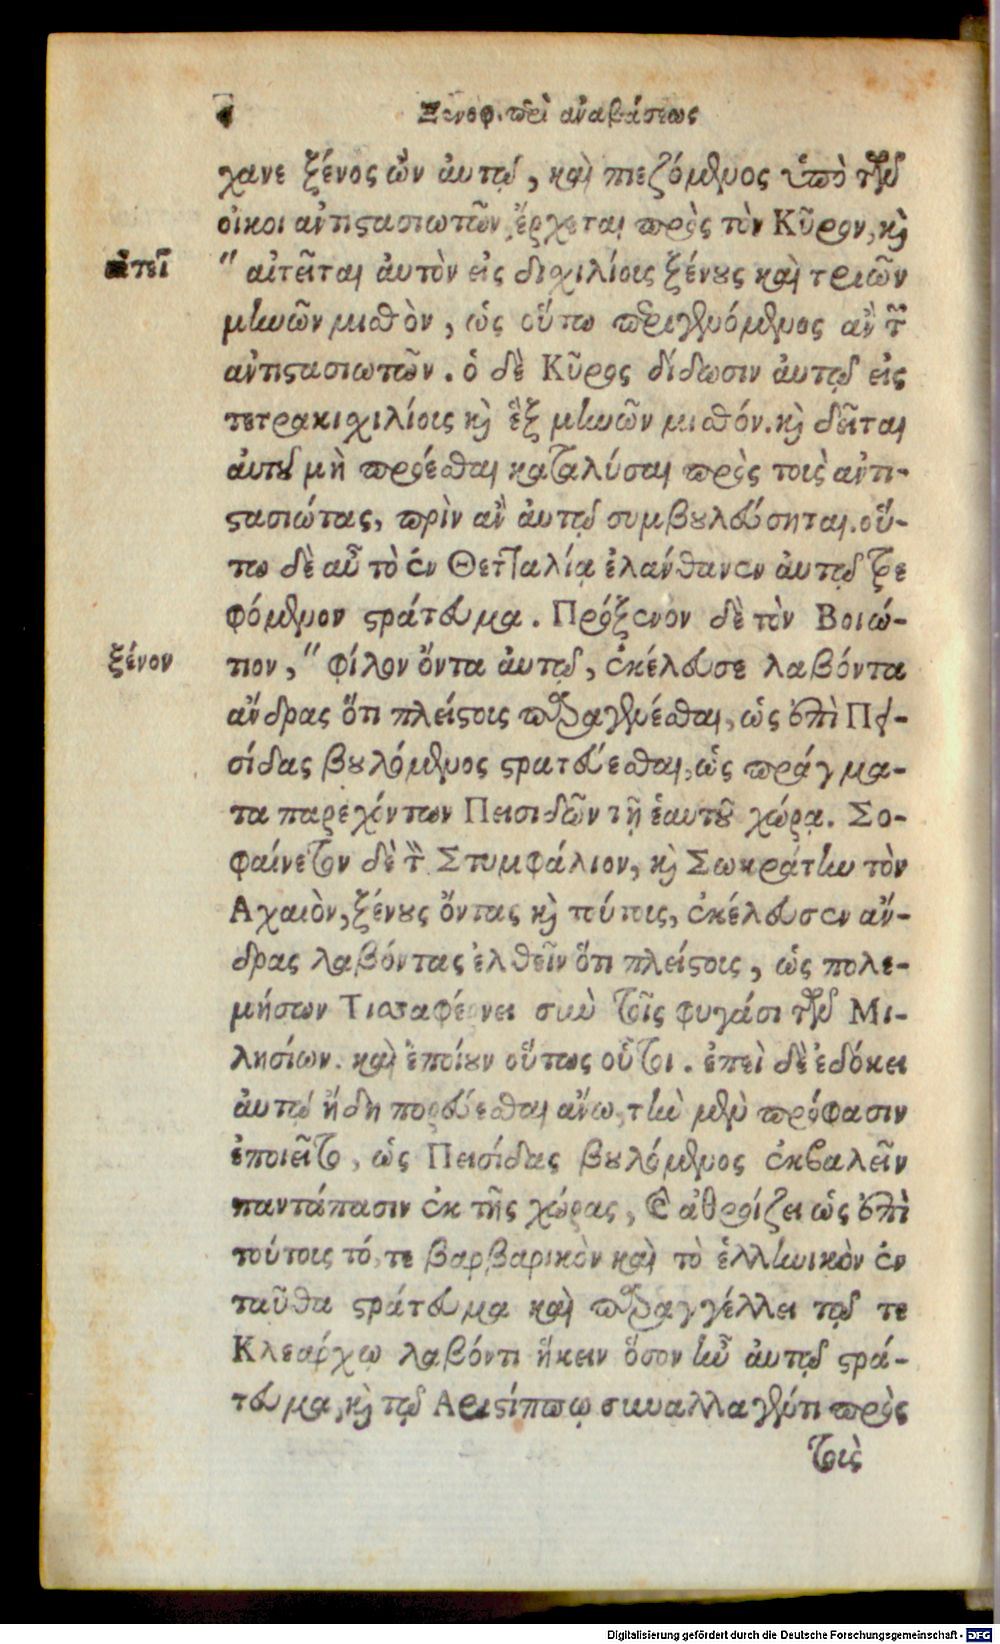 4 Ξενοφ. περὶ ἀναβάσεως
χανε ξένος ὢν αὐτῷ, καὶ πιεζόμενος ὑπὸ τῶν
οἴκοι ἀντιστασιωτῶν, ἔρχεται πρὸς τὸν Κῦρον, καὶ
αἰτεῖ
" αἰτεῖται αὐτὸν εἰς διχιλίους ξένους καὶ τριῶν
μηνῶν μισθὸν, ὡς οὕτω περιγενόμενος ἂν τῶν
ἀντιστασιωτῶν. ὁ δὲ Κῦρος δίδωσιν αὐτῷ εἰς
τετρακιχιλίους καὶ ἓξ μηνῶν μισθόν. καὶ δεῖται
αὐτοῦ μὴ πρόεσθαι καταλύσαι πρὸς τοὺς ἀντι-
στασιώτας, πρὶν ἂν αὐτῷ συμβουλεύσηται. οὕ-
τω δὲ αὖ τὸ ἐν Θετταλίᾳ ἐλάνθανεν αὐτῷ τρε
φόμενον στράτευμα. Πρόξενον δὲ τὸν Βοιώ-
ξένον
τιον, " φίλον ὄντα αὐτῷ, ἐκέλευσε λαβόντα
ἄνδρας ὅτι πλείστους παραγενέσθαι, ὡς ἐπὶ Πει-
σίδας βουλόμενος στρατεύεσθαι, ὡς πράγμα-
τα παρεχόντων Πεισιδῶν τῇ ἑαυτοῦ χώρᾳ. Σο-
φαίνετον δὲ τὸν Στυμφάλιον, καὶ Σωκράτην τὸν
Ἀχαιὸν, ξένους ὄντας καὶ τούτους, ἐκέλευσεν ἄν-
δρας λαβόντας ἐλθεῖν ὅτι πλείστους, ὡς πολε-
μήσων Τισσαφέρνει σὺν τοῖς φυγάσι τῶν Μι-
λησίων. καὶ ἐποίουν οὕτως οὗτοι. ἐπεὶ δὲ ἐδόκει
αὐτῷ ἤδη πορεύεσθαι ἄνω, τὴν μὲν πρόφασιν
ἐποιεῖτο, ὡς Πεισίδας βουλόμενος ἐκβαλεῖν
παντάπασιν ἐκ τῆς χώρας, καὶ ἀθροίζει ὡς ἐπὶ
τούτοις τό, τε βαρβαρικὸν καὶ τὸ ἑλληνικὸν ἐν
ταῦθα στράτευμα καὶ παραγγέλλει τῷ τε
Κλεάρχῳ λαβόντι ἥκειν ὅσον ἦν αὐτῷ στρά-
τευμα, καὶ τῷ Ἀριστίππῳ συναλλαγέντι πρὸς
τοὺς
Digitalisierung gefördert durch die Deutsche Forschungsgemeinschaft - DFG